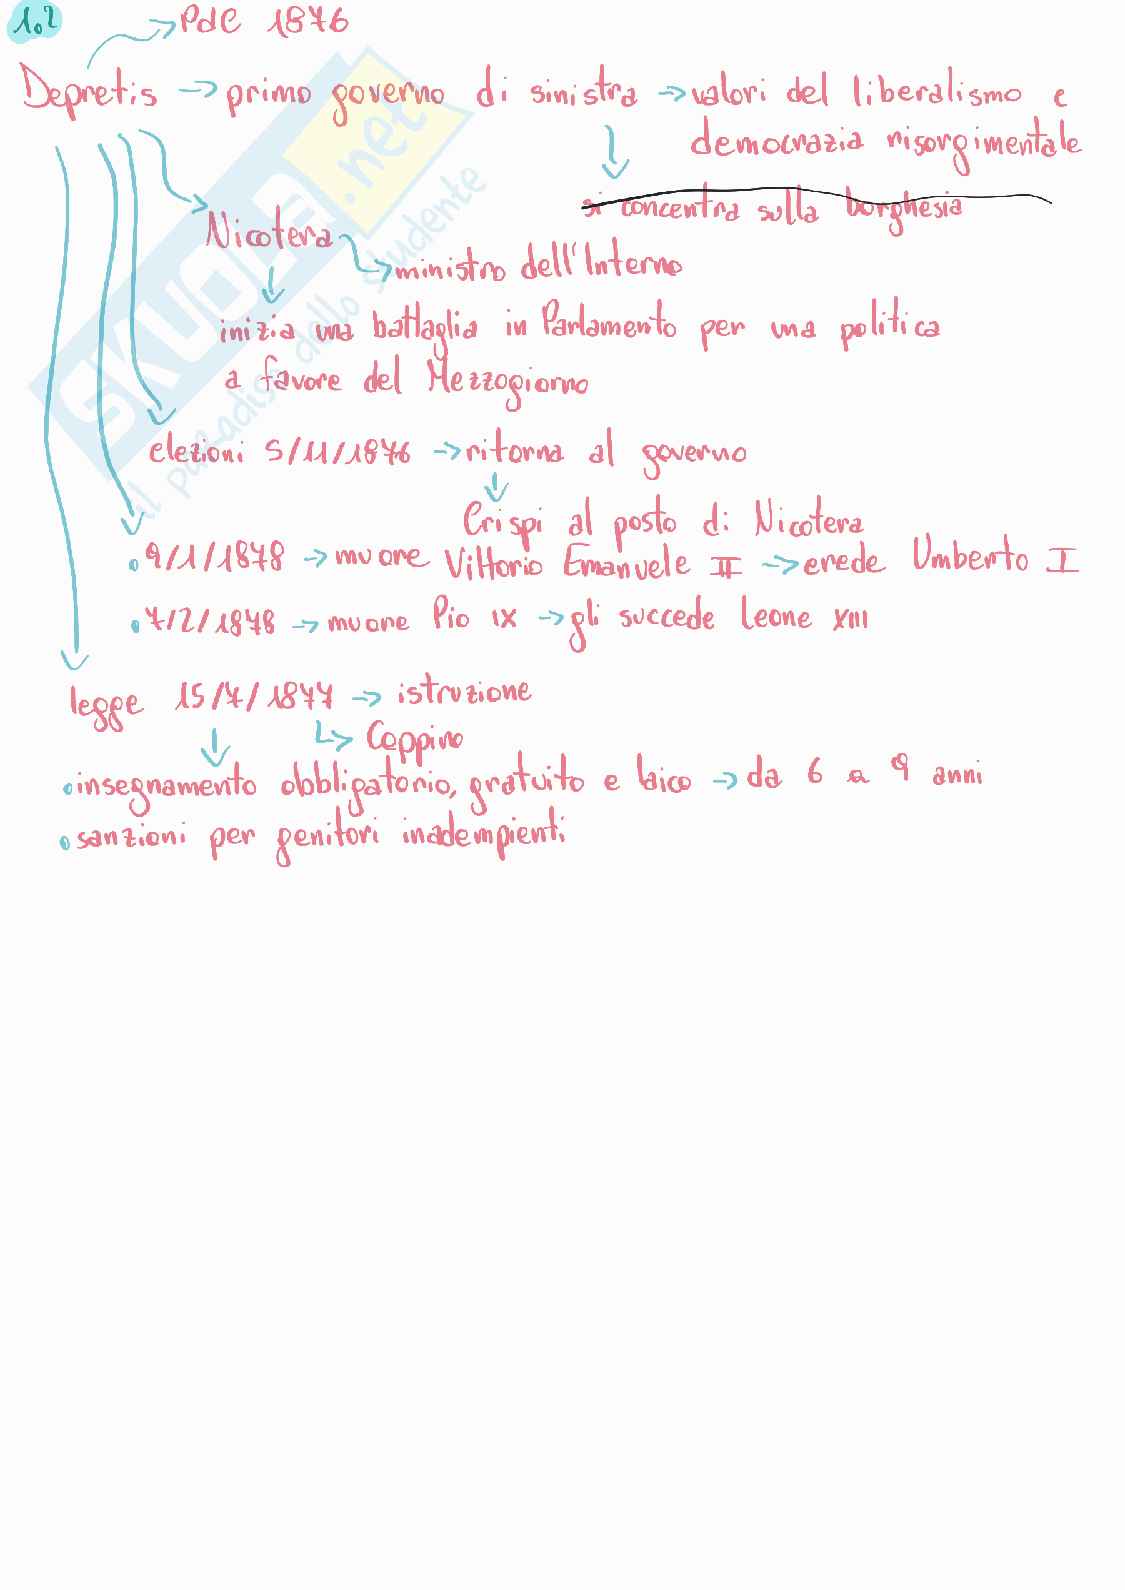 1.2
PdC 1876
Depretis → primo governo di sinistra → valori del liberalismo e
democrazia risorgimentale
si concentra sulla borghesia
Nicotera
ministro dell'Interno
inizia una battaglia in Parlamento per una politica
a favore del Mezzogiorno
elezioni 5/11/1876 → ritorna al governo
Crispi al posto di Nicotera
• 9/1/1878 → muore Vittorio Emanuele II → erede Umberto I
• 7/2/1878 → muore Pio IX → gli succede Leone XIII
legge 15/7/1877 → istruzione
Coppino
• insegnamento obbligatorio, gratuito e laico → da 6 a 9 anni
• sanzioni per genitori inadempienti
SKUOLA.net
il paradiso dello studente